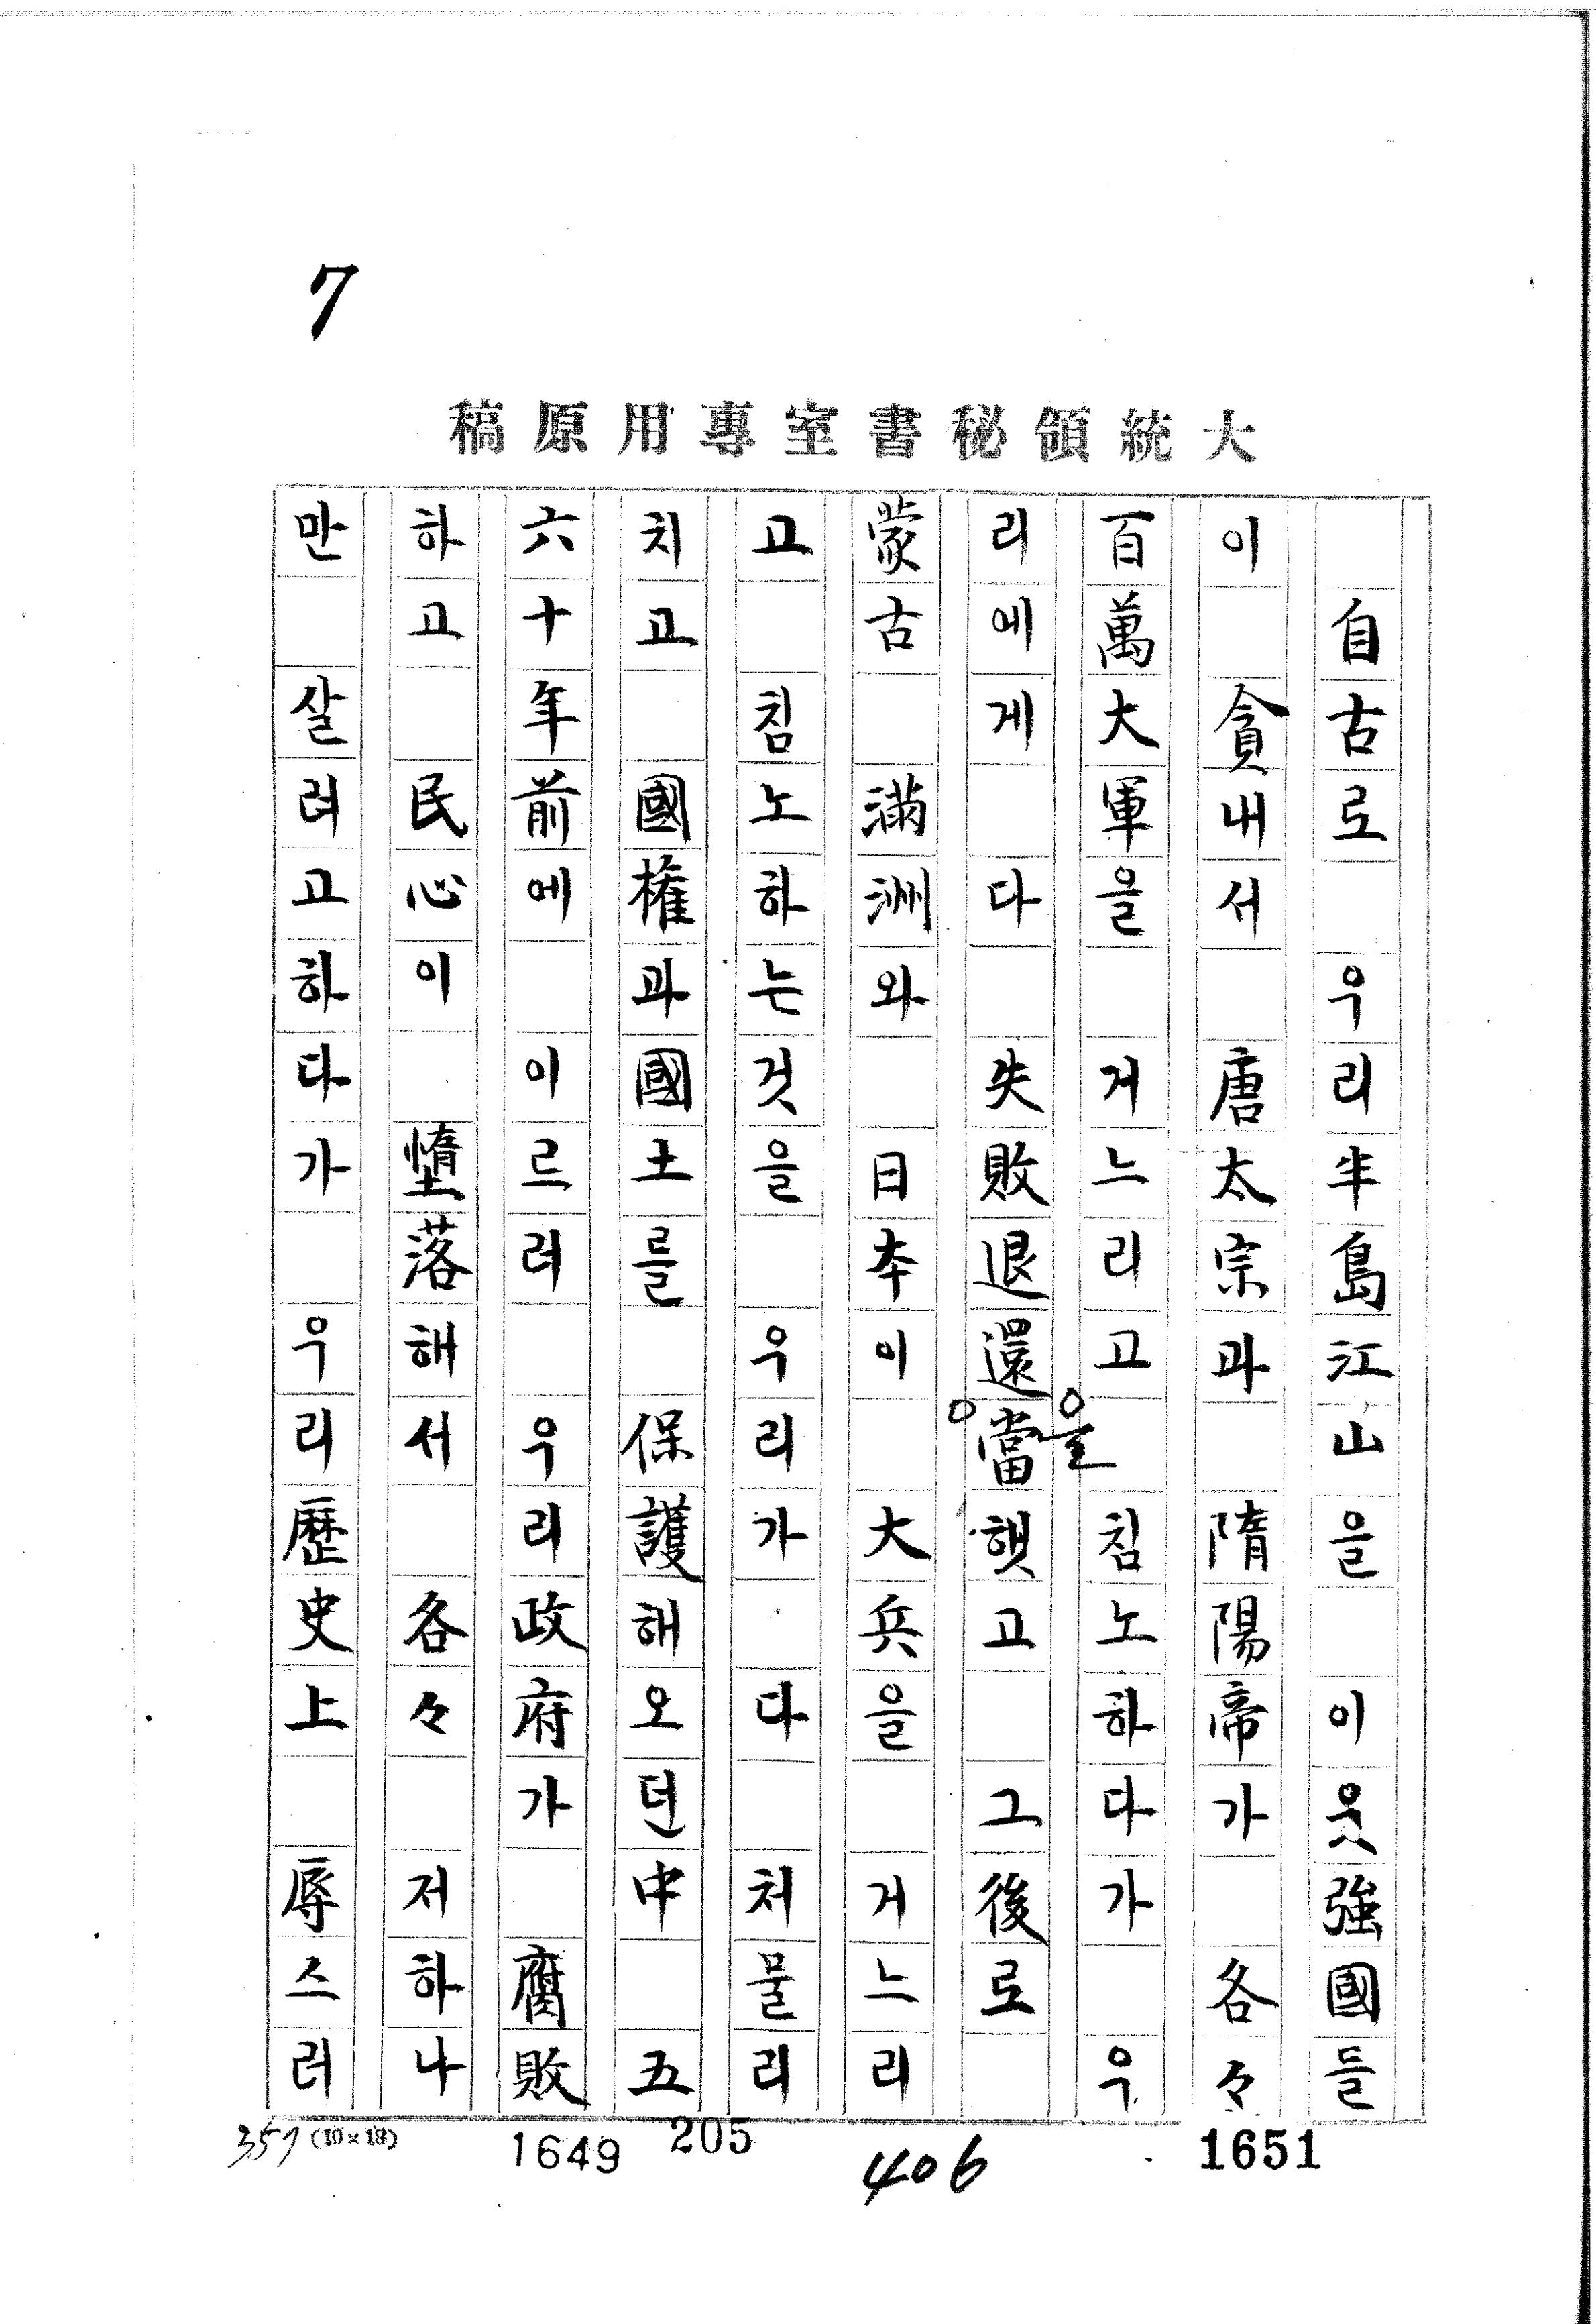 7
大統領秘書室專用原稿
自古로 우리半島江山을 이웃強國들
이 貪내서 唐太宗과 隋陽帝가 各々
百萬大軍을 거느리고 침노하다가 우
리에게 다 失敗退還을當햇고 그後로
蒙古 滿洲와 日本이 大兵을 거느리
고 침노하는것을 우리가 다 처물리
치고 國權과國土를 保護해오던中 五
六十年前에 이르러 우리政府가 腐敗
하고 民心이 墮落해서 各々 저하나
만 살려고하다가 우리歷史上 辱스러
357 (10×18) 1649 205 406 1651